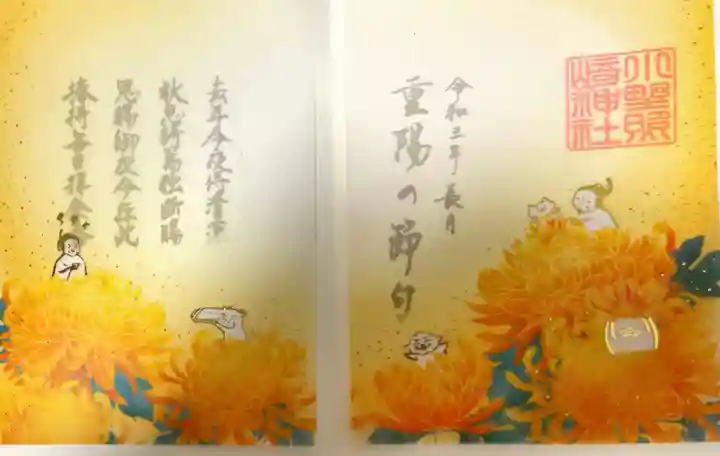 小野照
崎神社
令和三年長月
重陽の節句
去年今夜侍清涼
秋思詩篇独断腸
恩賜御衣今在此
捧持毎日拝余香